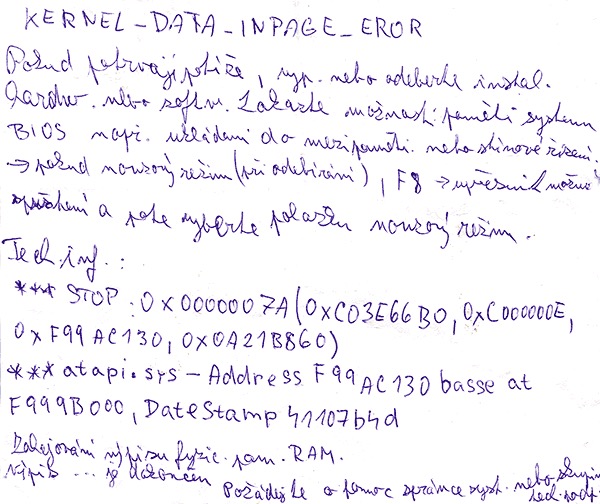 KERNEL_DATA_INPAGE_EROR
Pokud přetrvají potíže, vyp. nebo odeberte instal.
hardw. nebo softw. Zakažte možnosti paměti systemu
BIOS např. ukládání do mezipaměti nebo stínové řízení.
→ pokud nouzový režim (při odebírání), F8 → upřesnit možnosti
spuštění a poté vyberte položku nouzový režim.
Tech.inf.:
*** STOP: 0x0000007A (0xC03E66B0, 0xC000000E,
0xF99AC130, 0x0A21B860)
*** atapi.sys - Address F99AC130 basse at
F999B000, DateStamp 41107b4d
Zahajování výpisu fyzic. pam. RAM.
Výpis ... je dokončen
Požádejte o pomoc správce syst. nebo skupinu
tech. podp.